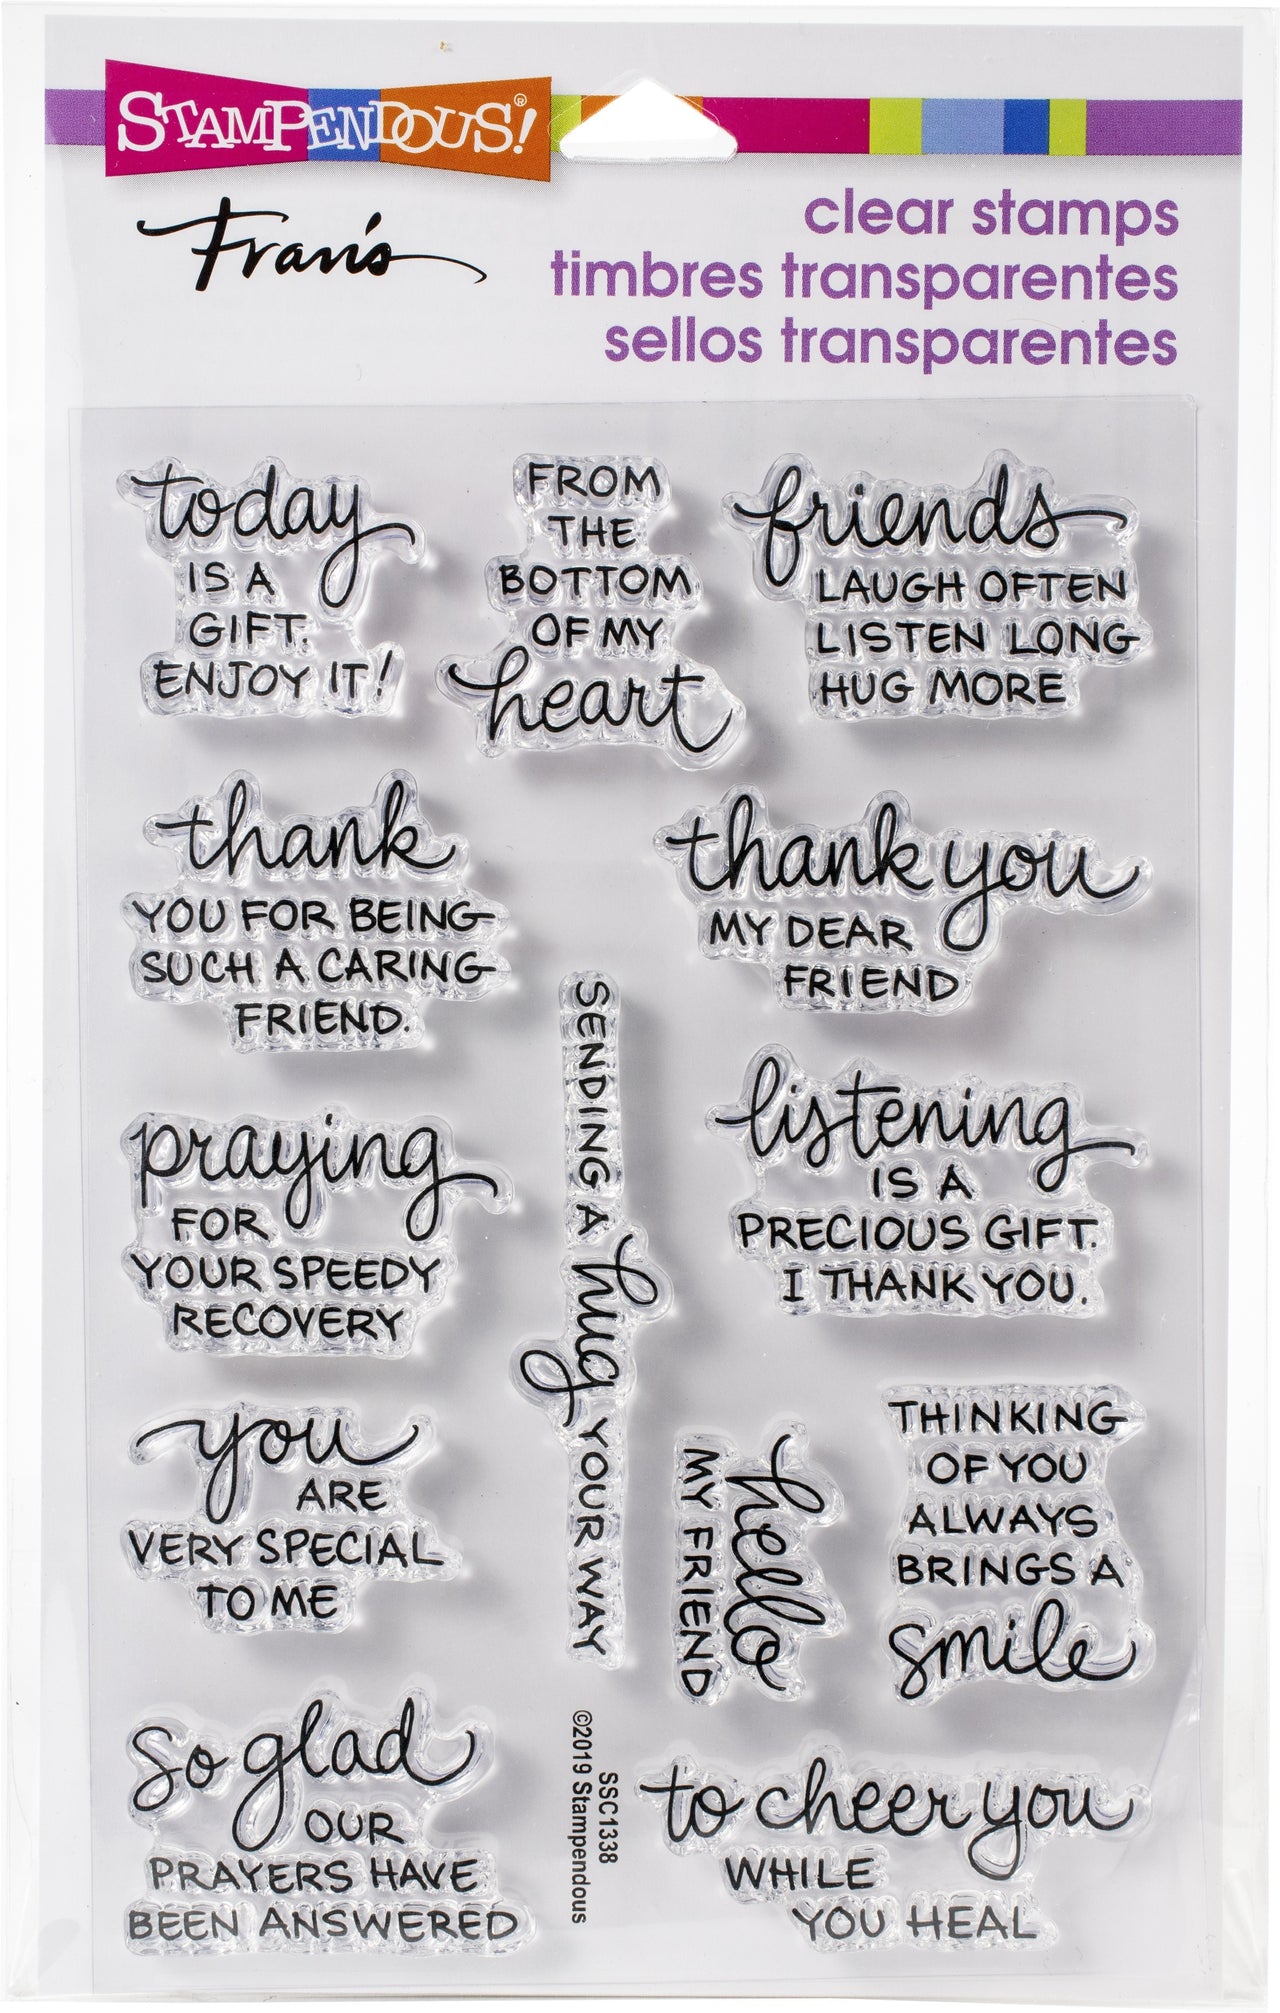 STAMPENDOUS!®
Fran's
clear stamps
timbres transparentes
sellos transparentes
today
IS A
GIFT.
ENJOY IT!
FROM
THE
BOTTOM
OF MY
heart
friends
LAUGH OFTEN
LISTEN LONG
HUG MORE
thank
YOU FOR BEING
SUCH A CARING
FRIEND.
thank you
MY DEAR
FRIEND
SENDING A hug YOUR WAY
praying
FOR
YOUR SPEEDY
RECOVERY
listening
IS A
PRECIOUS GIFT.
I THANK YOU.
you
ARE
VERY SPECIAL
TO ME
hello
MY FRIEND
THINKING
OF YOU
ALWAYS
BRINGS A
smile
so glad
OUR
PRAYERS HAVE
BEEN ANSWERED
SSC1338
©2019 Stampendous
to cheer you
WHILE
YOU HEAL